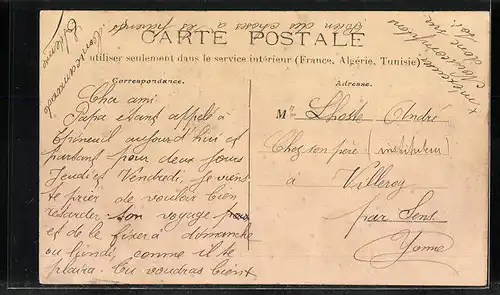 CARTE POSTALE
A utiliser seulement dans le service intérieur (France, Algérie, Tunisie)
Correspondance.
Cher ami
Papa étant appelé à
Epineuil aujourd'hui et
partant pour deux jours
Jeudi et Vendredi, je viens
te prier de vouloir bien
retarder ton voyage
et de le fixer à dimanche
ou lundi, comme il te
plaira. Tu voudras bien
Bien des choses à tes parents
Adresse.
Mr Lhoste André
Chez son père (instituteur)
à Villeroy
par Sens
Yonne